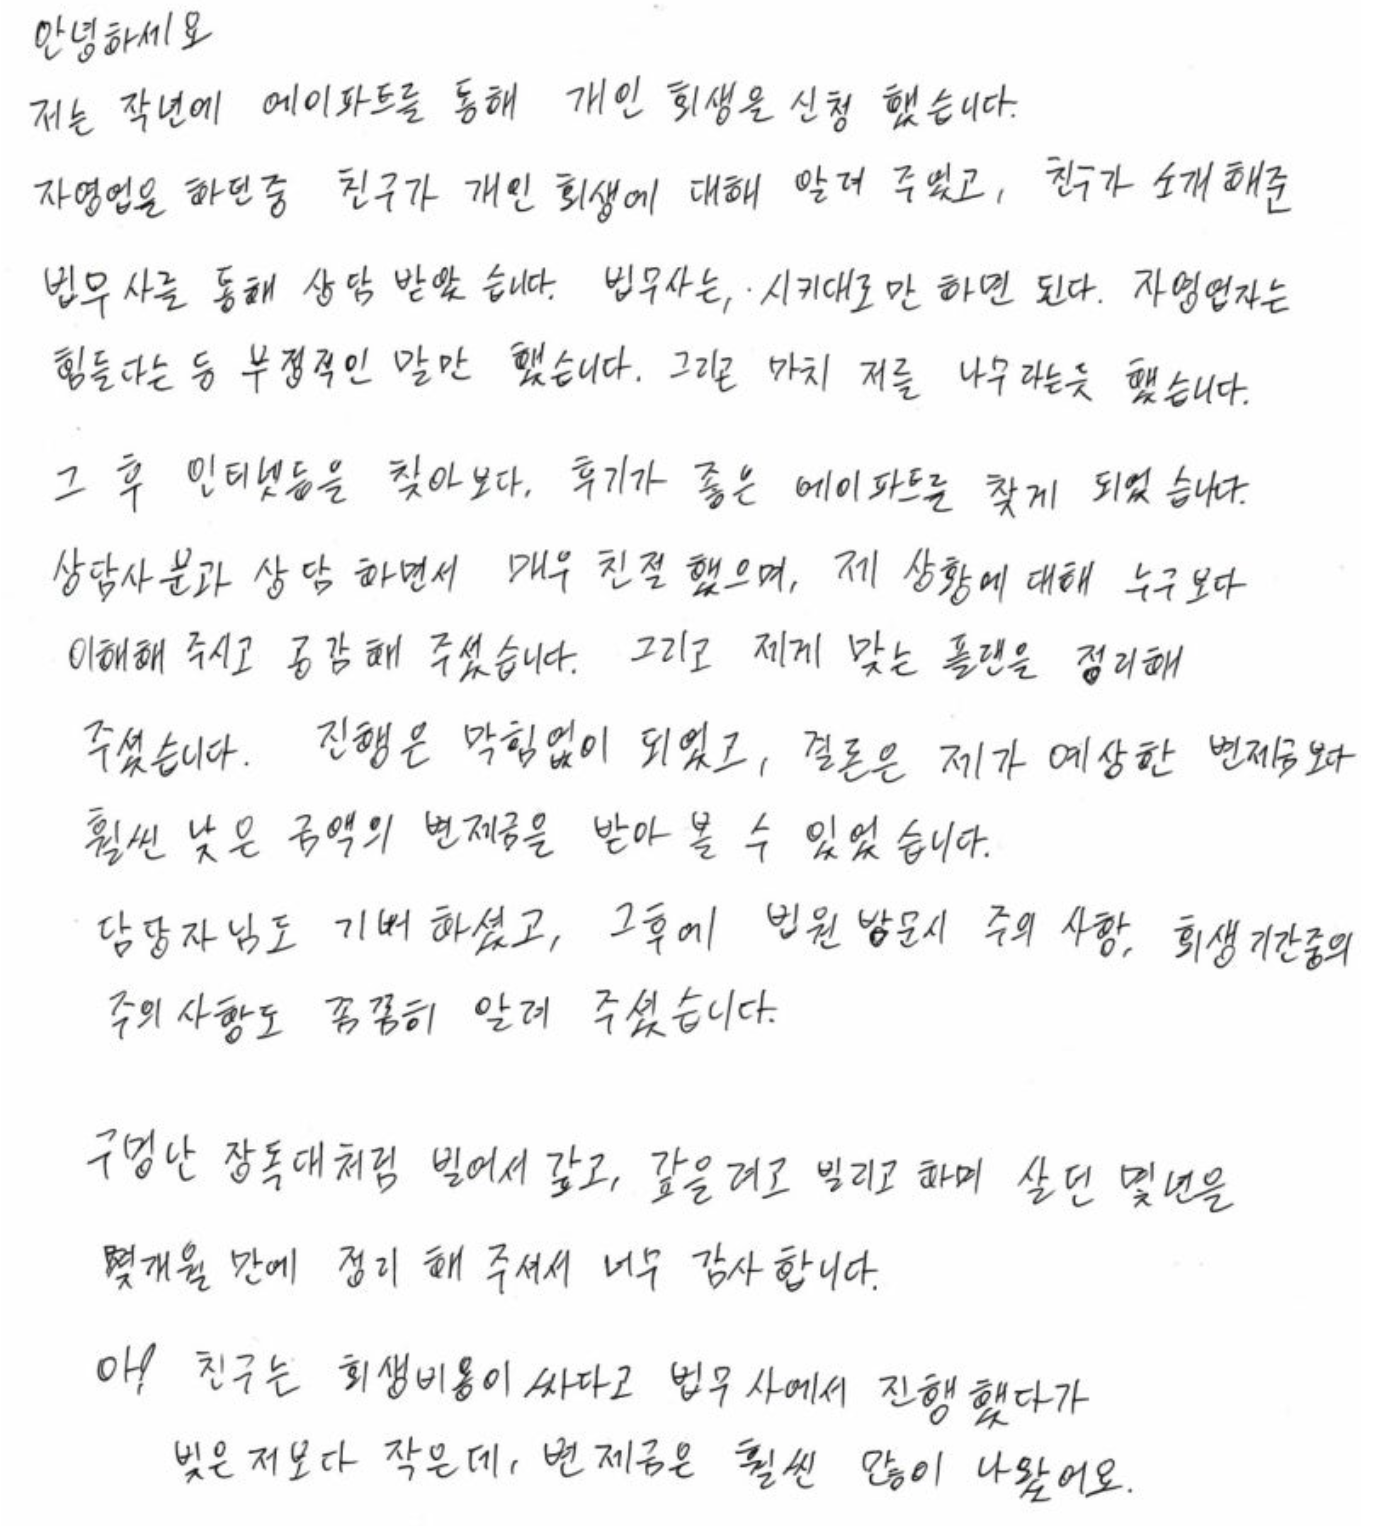 안녕하세요
저는 작년에 에이파트를 통해 개인 회생을 신청 했습니다.
자영업을 하던중 친구가 개인 회생에 대해 알려 주었고, 친구가 소개해준
법무사를 통해 상담 받았습니다. 법무사는, 시키대로만 하면 된다. 자영업자는
힘들다는 등 부정적인 말만 했습니다. 그리곤 마치 저를 나무라는듯 했습니다.
그 후 인터넷등을 찾아보다, 후기가 좋은 에이파트를 찾게 되었습니다.
상담사분과 상담 하면서 매우 친절 했으며, 제 상황에 대해 누구보다
이해해 주시고 공감해 주셨습니다. 그리고 제게 맞는 플랜을 정리해
주셨습니다. 진행은 막힘없이 되었고, 결론은 제가 예상한 변제금보다
훨씬 낮은 금액의 변제금을 받아 볼 수 있었습니다.
담당자님도 기뻐 하셨고, 그후에 법원 방문시 주의 사항, 회생기간중의
주의사항도 꼼꼼히 알려 주셨습니다.
구멍난 장독대처럼 빌어서 갚고, 갚을려고 빌리고 하며 살던 몇년을
몇개월 만에 정리 해 주셔서 너무 감사합니다.
아! 친구는 회생비용이 싸다고 법무사에서 진행했다가
빚은 저보다 작은데, 변제금은 훨씬 많이 나왔어요.